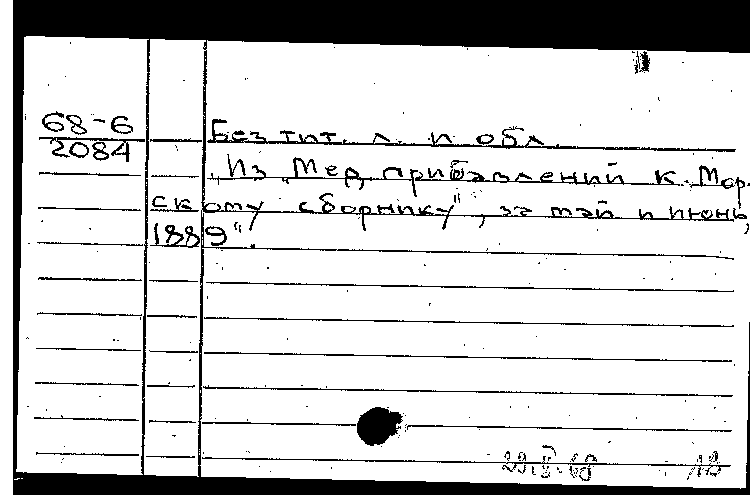 68-6
2084
Без тит. л. и обл.
"Из "Мед. прибавлений к Мор-
скому сборнику", за май и июнь,
1889".